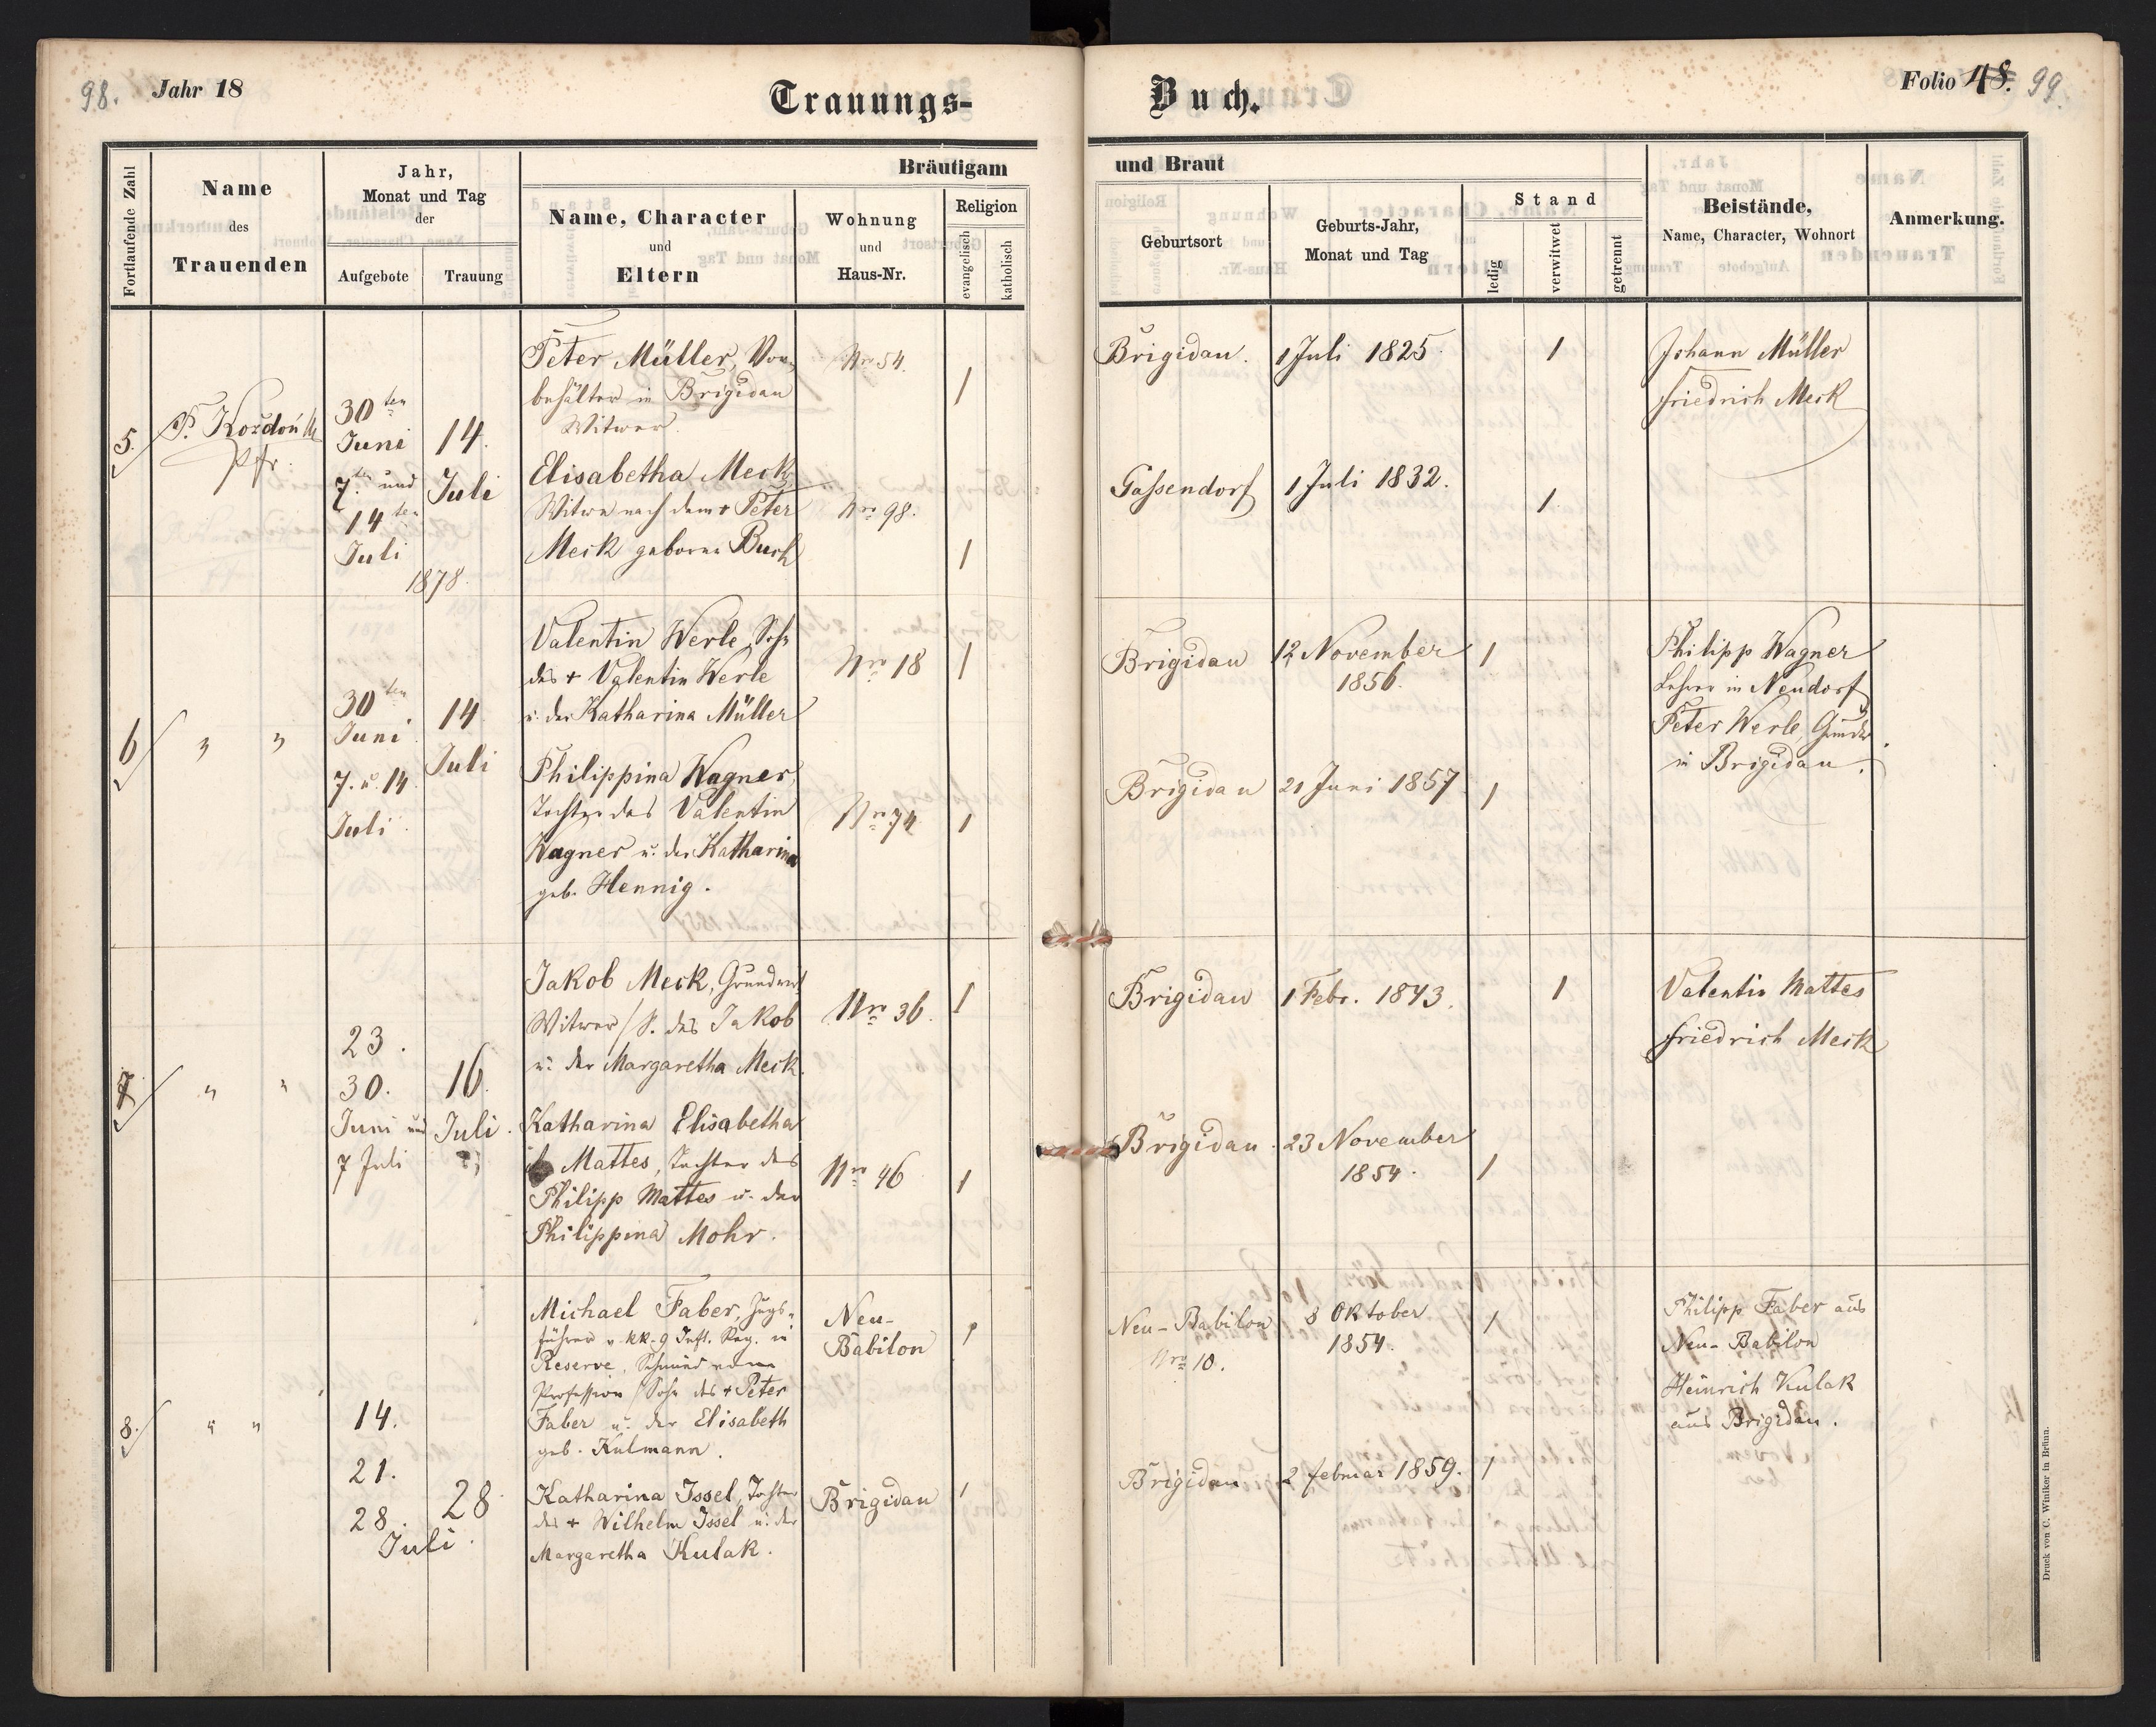 98.
Jahr 18
Trauungs-
Fortlaufende Zahl
Name
des
Trauenden
Jahr,
Monat und Tag
der
Aufgebote
Trauung
Bräutigam
Name, Character
und
Eltern
Wohnung
und
Haus-Nr.
Religion
evangelisch
katholisch
5.
Pfr.
30ten
Juni
7ten und
14ten
Juli
14.
Juli
1878.
Peter Müller, Vor-
behälter in Brigidau
Witwer.
Nro 54.
1
Elisabetha Meck,
Witwe nach dem + Peter
Meck geborne Buch
Nro 98.
1
6
" "
30ten
Juni
7. u. 14.
Juli.
14
Juli
Valentin Werle, Sohn
des + Valentin Werle
u. der Katharina Müller
Nro 18
1
Philippina Wagner,
Tochter des Valentin
Wagner u. der Katharina
geb. Hennig.
Nro 74
1
7
" "
23.
30.
Juni und
7 Juli
16.
Juli.
Jakob Meck, Grundwirt
Witwer / S. des Jakob
u. der Margaretha Meck.
Nro 36.
1
Katharina Elisabetha
Mattes, Tochter des
Philipp Mattes u. der
Philippina Mohr.
Nro 46
1
8.
" "
14.
21.
28.
Juli.
28
Michael Faber, Zugs-
führer v. kk. 9 Inft. Reg. in
Reserve, Schmied
Profession / Sohn des + Peter
Faber u. der Elisabeth
geb. Kulmann.
Neu-
Babilon
1
Katharina Issel, Tochter
des + Wilhelm Issel u. der
Margaretha Kulak.
Brigidau
1
Buch.
Folio 48. 99.
und Braut
Geburtsort
Geburts-Jahr,
Monat und Tag
Stand
ledig
verwitwet
getrennt
Beistände,
Name, Character, Wohnort
Anmerkung.
Brigidau.
1 Juli 1825.
1
Johann Müller
Friedrich Meck
Gassendorf
1 Juli 1832.
1
Brigidau
12 November
1856.
1
Philipp Wagner
Lehrer in Neudorf
Peter Werle, Grundw.
in Brigidau.
Brigidau
21 Juni 1857.
1
Brigidau
1 Febr. 1843.
1
Valentin Mattes
Friedrich Meck
Brigidau.
23 November
1854.
1
Neu-Babilon
Nro 10.
8 Oktober
1854.
1
Philipp Faber aus
Neu-Babilon
Heinrich Kulak
aus Brigidau.
Brigidau
2 Februar 1859.
1
Druck von C. Winiker in Brünn.